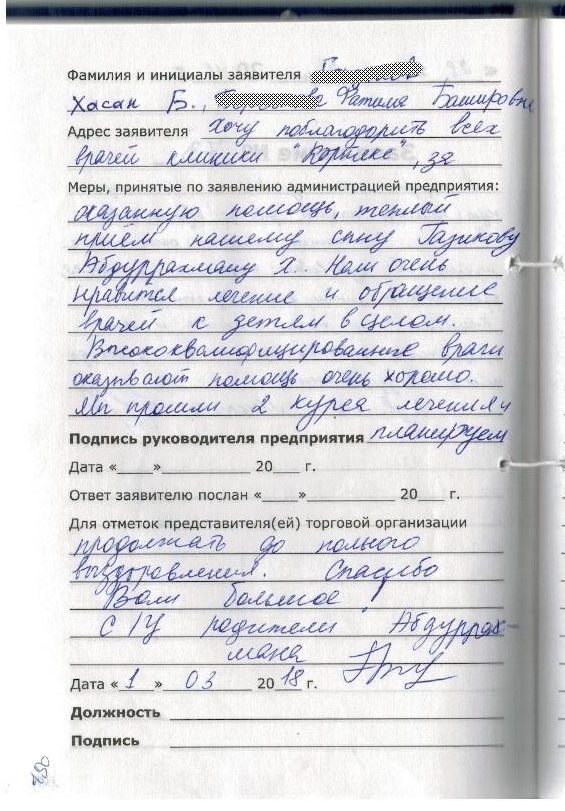 Фамилия и инициалы заявителя
Хасан Б., Фатима Башировна
Адрес заявителя Хочу поблагодорить всех
врачей клиники "Кортекс", за
Меры, принятые по заявлению администрацией предприятия:
оказанную помощь, теплый
приём нашему сыну Газикову
Абдуррахману Х.. Нам очень
нравится лечение и обращение
врачей к детям в целом.
Высококвалифицированные врачи
оказывают помощь очень хорошо.
Мы прошли 2 курса лечения и
Подпись руководителя предприятия планируем
Дата «___»__________ 20___ г.
Ответ заявителю послан «___»__________ 20___ г.
Для отметок представителя(ей) торговой организации
продолжать до полного
выздоровления. Спасибо
Вам большое!
С 1У родители Абдуррах-
мана
Дата «1» 03 2018 г.
Должность
Подпись